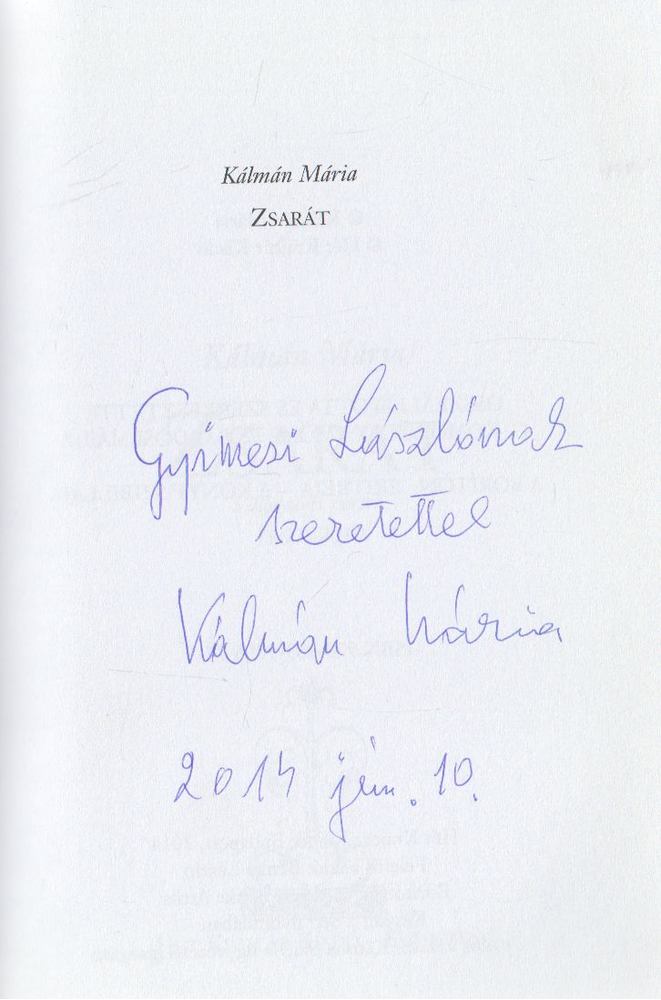 Kálmán Mária
ZSARÁT
Gyimesi Lászlónak
szeretettel
Kálmán Mária
2014 jún. 10.